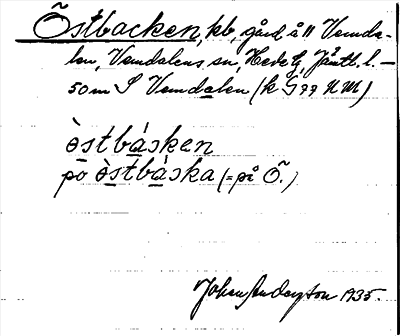 Östbacken, kb, gård å 11 Vemda-
len, Vemdalens sn, Hede tg, Jämtl. l. —
50 m S Vemdalen (k G 77 NM)
ὲstbáskęn
po ὲstbáska (= på Ö.)
Johan Anderzson 1935.